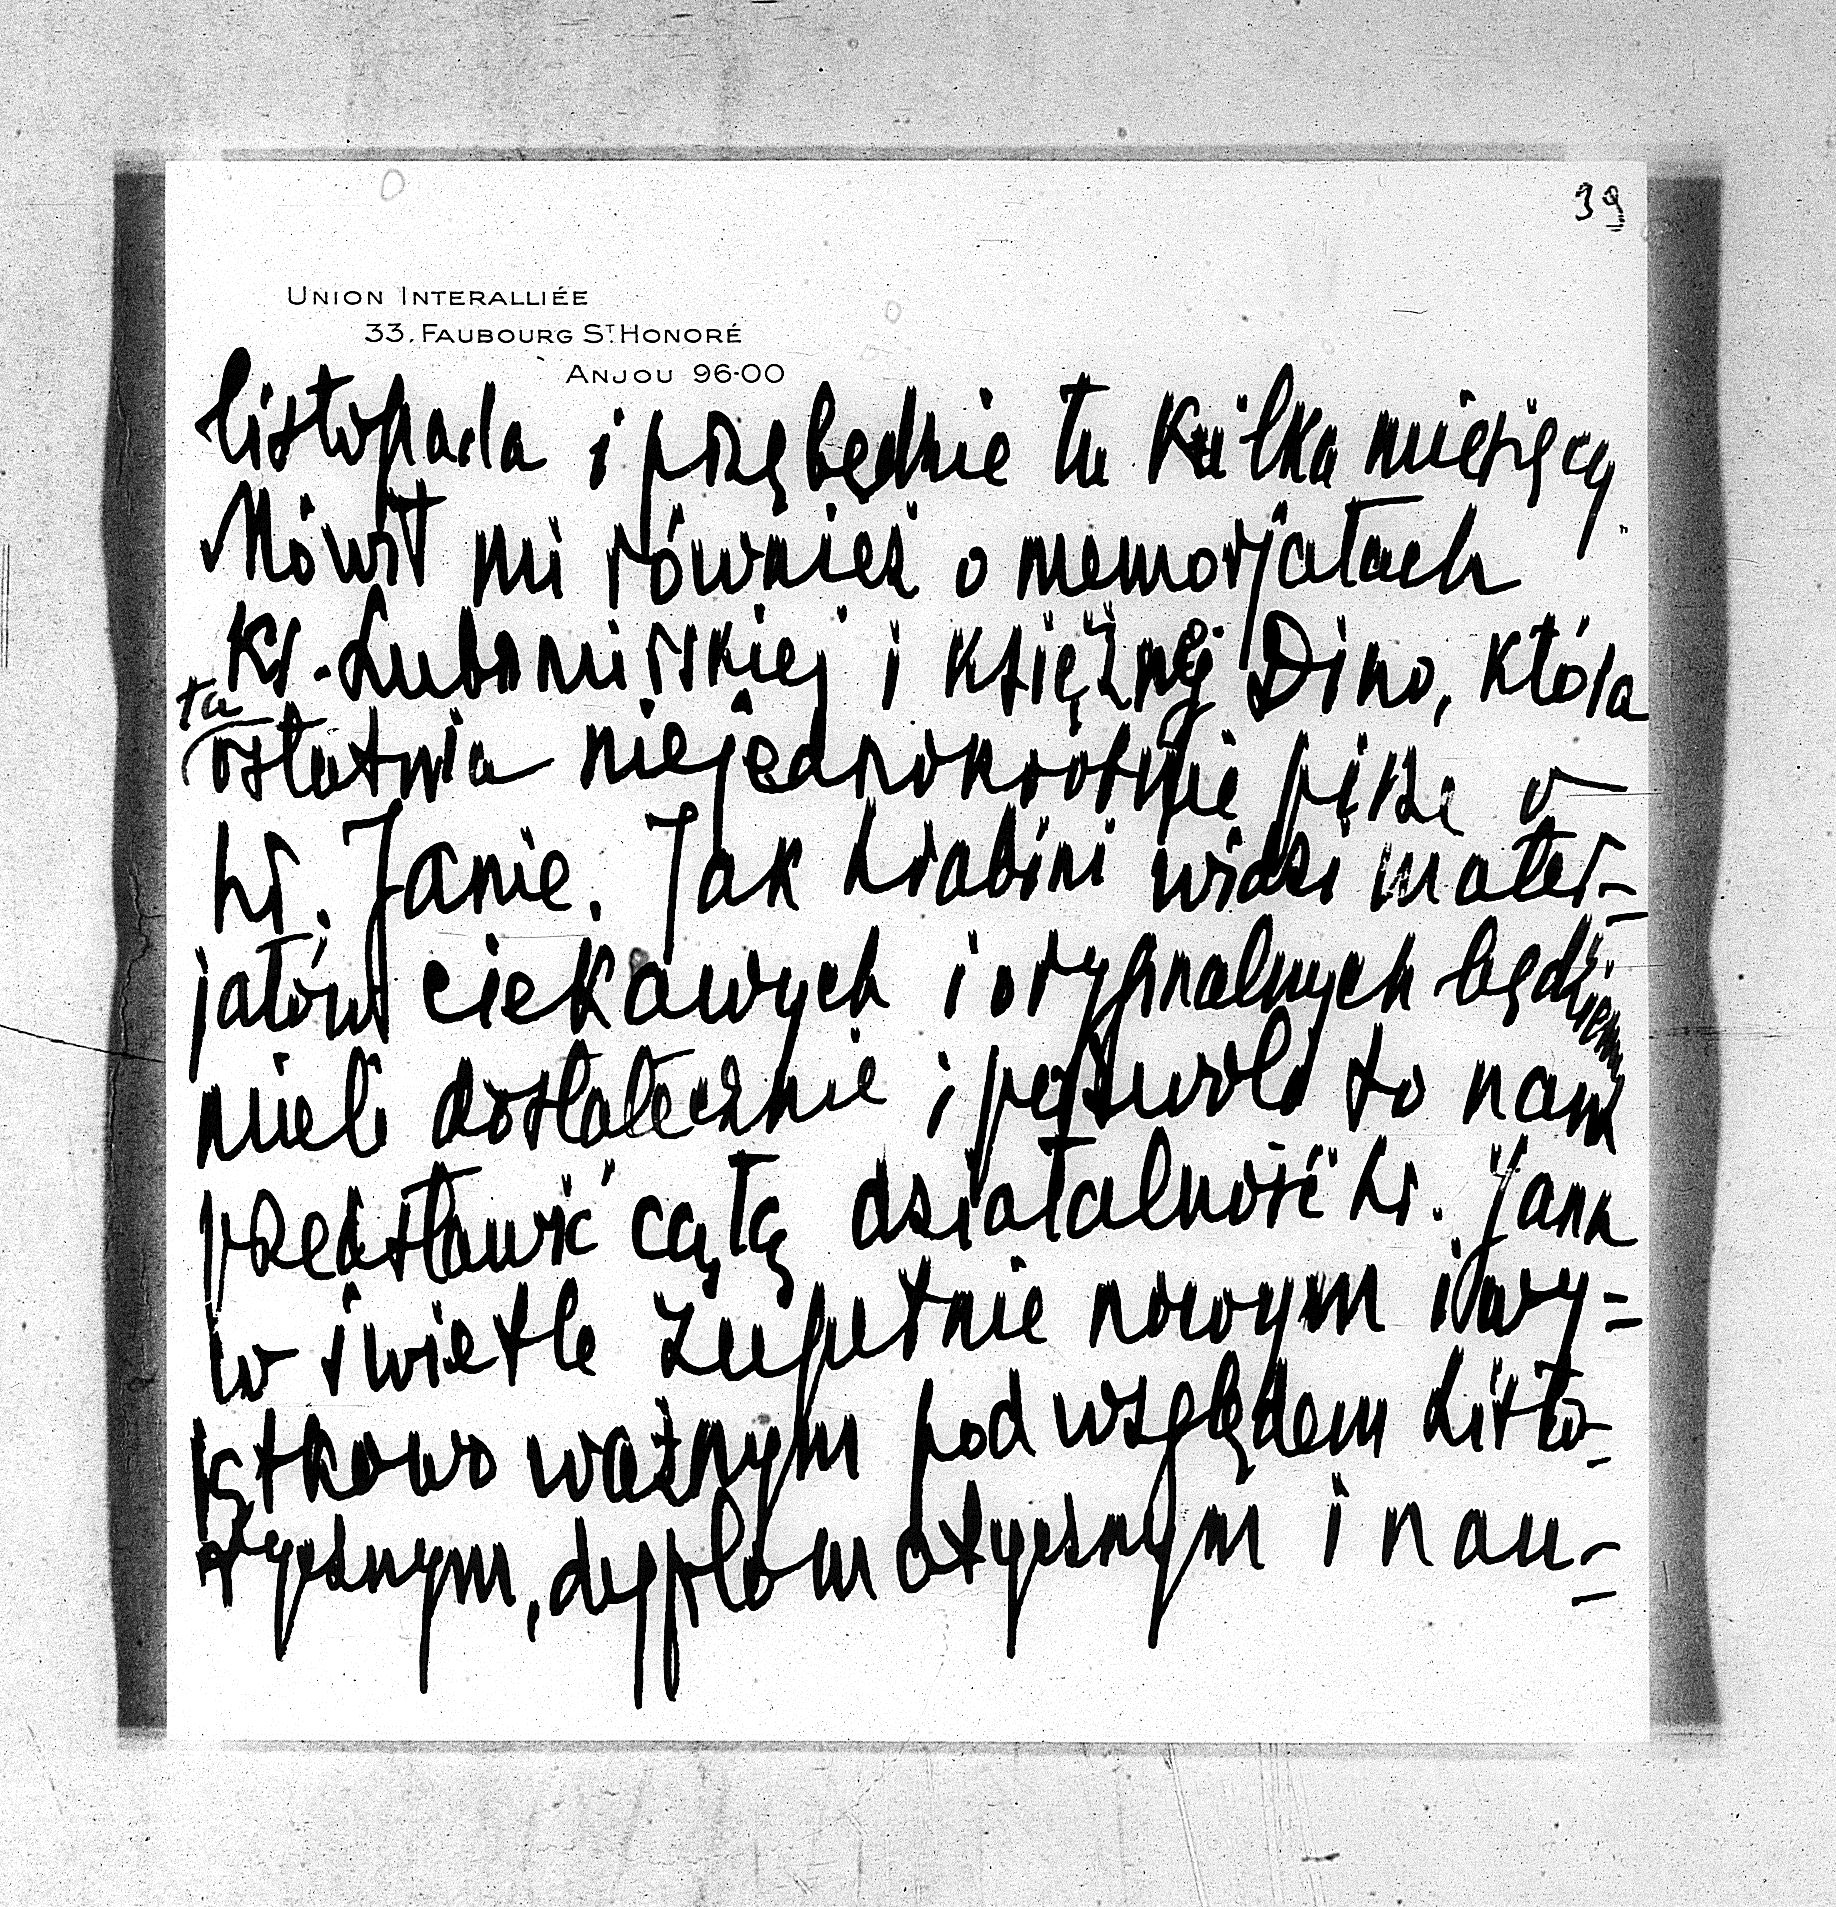 39
UNION INTERALLIÉE
33. FAUBOURG ST. HONORÉ
ANJOU 96-00
listopada i przębędzie tu kilka miesięcy
Mówił mi również o memorjałach
Ks. Lubomirskiej i księżnej Dino, która
ta
ostatnia niejednokrotnie pisze o
hr. Janie. Jak hrabini widzi mater-
jałów ciekawych i oryginalnych będziemy
mieli dostatecznie i pozwoli to nam
przedstawić całą działalność hr. Jana
w świetle zupełnie nowym i wy=
jątkowo ważnym pod względem histo-
rycznym, dyplomatycznym i nau-